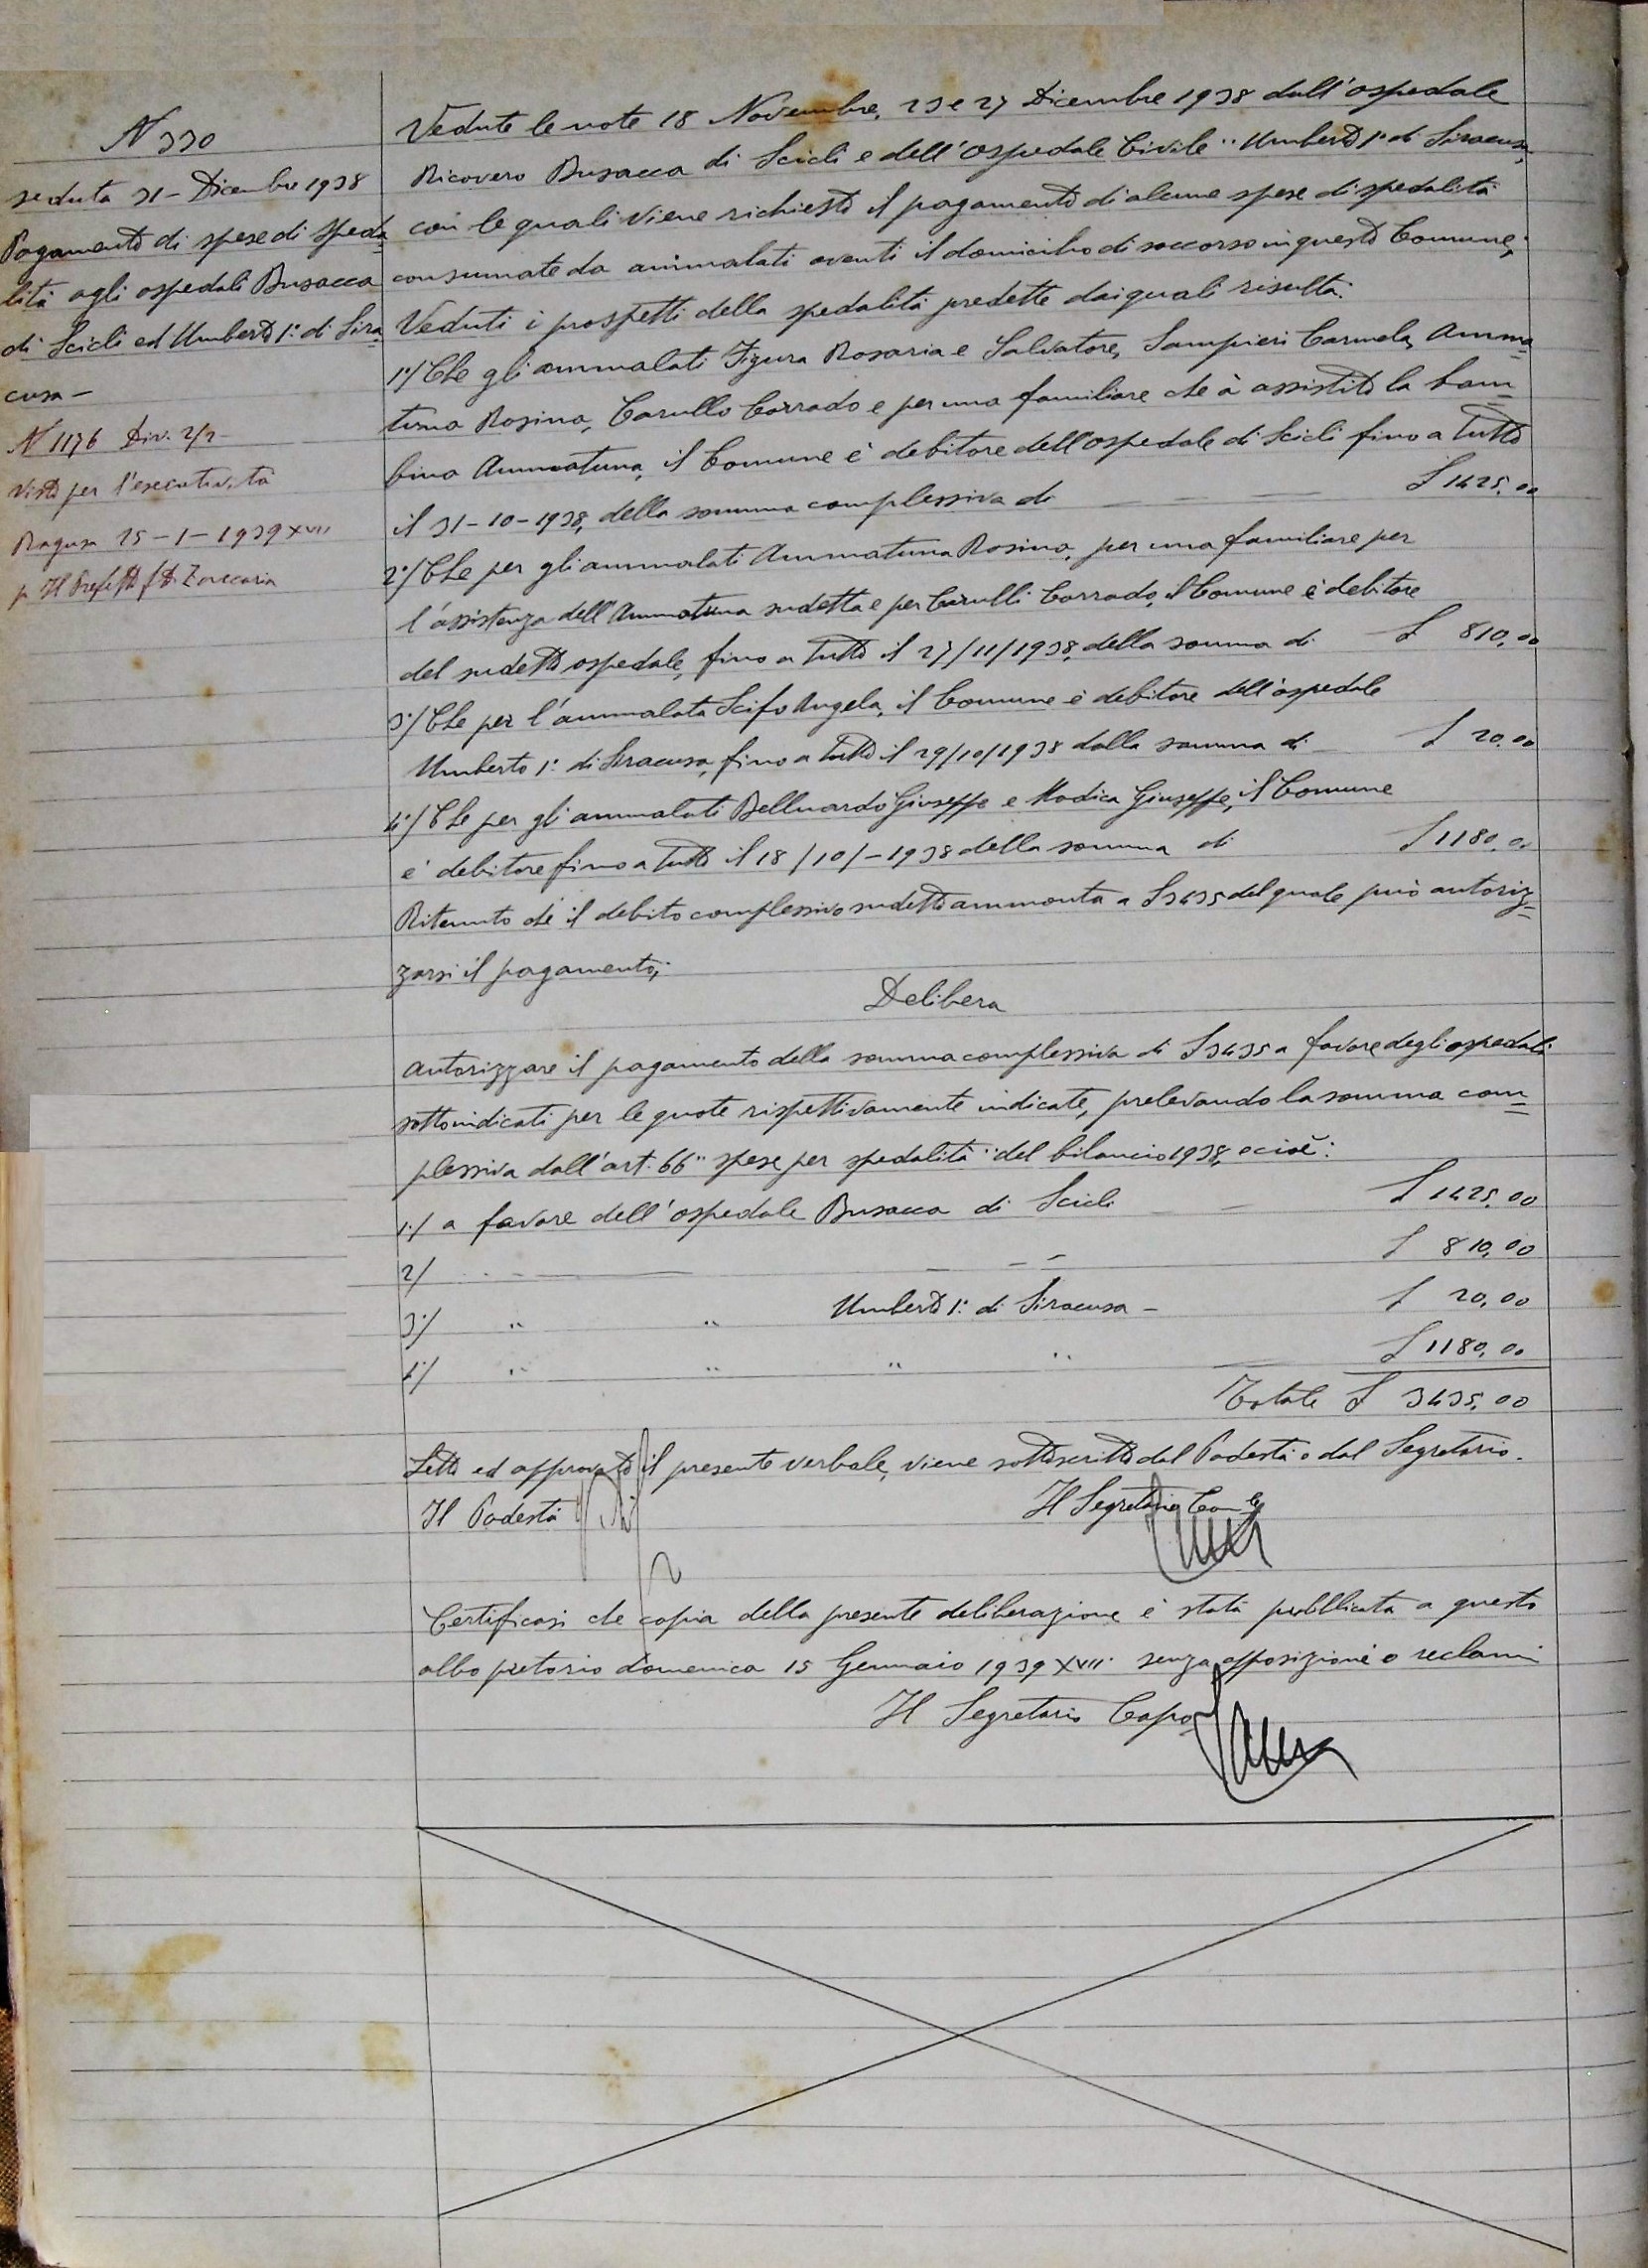 N 330
seduta 31 - Dicembre 1938
Pagamento di spese di speda
lità agli ospedali Busacca
di Scicli ed Umberto 1° di Sira
cusa -
N 1176 Div. 2/2 -
Visto per l'esecutività
Ragusa 25-1-1939 XVII
p Il Prefetto fto Zaccaria
Vedute le note 18 Novembre, 23 e 27 Dicembre 1938 dell'ospedale
Ricovero Busacca di Scicli e dell'Ospedale Civile "Umberto 1° di Siracusa,
con le quali viene richiesto il pagamento di alcune spese di spedalità
consumate da ammalati aventi il domicilio di soccorso in questo Comune;
Veduti i prospetti della spedalità predette dai quali risulta:
1°/ Che gli ammalati Figura Rosaria e Salvatore, Sampieri Carmela, Amma=
tuna Rosina, Carullo Corrado e per una familiare che à assistito la bam=
bina Ammatuna, il Comune è debitore dell'ospedale di Scicli fino a tutto
il 31-10-1938, della somma complessiva di £ 1425,00
2°/ Che per gli ammalati Ammatuna Rosina, per una familiare per
l'assistenza dell'Ammatuna sudetta e per Carulli Corrado, il Comune è debitore
del sudetto ospedale, fino a tutto il 27/11/1938, della somma di £ 810,00
3°/ Che per l'ammalata Scifo Angela, il Comune è debitore dell'ospedale
Umberto 1° di Siracusa, fino a tutto il 29/10/1938 della somma di £ 20,00
4°/ Che per gli ammalati Belluardo Giuseppe e Modica Giuseppe, il Comune
è debitore fino a tutto il 18/10/-1938 della somma di £ 1180,00
Ritenuto che il debito complessivo sudetto ammonta a £ 3435 del quale può autoriz=
zarsi il pagamento;
Delibera
Autorizzare il pagamento della somma complessiva di £ 3435 a favore degli ospedali
sottoindicati per le quote rispettivamente indicate, prelevando la somma com=
plessiva dall'art. 66 "spese per spedalità" del bilancio 1938, e cioè:
1°/ a favore dell'ospedale Busacca di Scicli £ 1425,00
2/ £ 810,00
3°/ " " Umberto 1° di Siracusa - £ 20,00
4°/ " " " " £ 1180,00
Totale £ 3435,00
Letto ed approvato il presente verbale, viene sottoscritto dal Podestà e dal Segretario.
Il Podestà Il Segretario Com le
Certificasi che copia della presente deliberazione è stata pubblicata a questo
albo pretorio domenica 15 Gennaio 1939 XVII senza opposizione o reclami
Il Segretario Capo